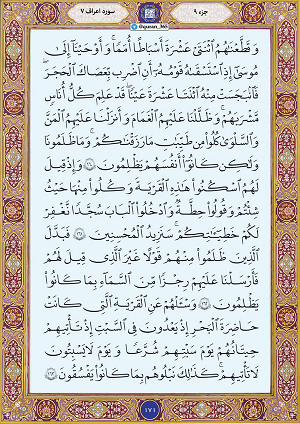 جزء ۹
سوره اعراف ۷
@quran_365
وَقَطَّعْنَٰهُمُ ٱثْنَتَىْ عَشْرَةَ أَسْبَاطًا أُمَمًا ۚ وَأَوْحَيْنَآ إِلَىٰ
مُوسَىٰٓ إِذِ ٱسْتَسْقَىٰهُ قَوْمُهُۥٓ أَنِ ٱضْرِب بِّعَصَاكَ ٱلْحَجَرَ ۖ
فَٱنۢبَجَسَتْ مِنْهُ ٱثْنَتَا عَشْرَةَ عَيْنًا ۖ قَدْ عَلِمَ كُلُّ أُنَاسٍ
مَّشْرَبَهُمْ ۚ وَظَلَّلْنَا عَلَيْهِمُ ٱلْغَمَٰمَ وَأَنزَلْنَا عَلَيْهِمُ ٱلْمَنَّ
وَٱلسَّلْوَىٰ ۖ كُلُوا۟ مِن طَيِّبَٰتِ مَا رَزَقْنَٰكُمْ ۚ وَمَا ظَلَمُونَا
وَلَٰكِن كَانُوٓا۟ أَنفُسَهُمْ يَظْلِمُونَ ۝١٦٠ وَإِذْ قِيلَ
لَهُمُ ٱسْكُنُوا۟ هَٰذِهِ ٱلْقَرْيَةَ وَكُلُوا۟ مِنْهَا حَيْثُ
شِئْتُمْ وَقُولُوا۟ حِطَّةٌ وَٱدْخُلُوا۟ ٱلْبَابَ سُجَّدًا نَّغْفِرْ
لَكُمْ خَطِيٓـَٰٔتِكُمْ ۚ سَنَزِيدُ ٱلْمُحْسِنِينَ ۝١٦١ فَبَدَّلَ
ٱلَّذِينَ ظَلَمُوا۟ مِنْهُمْ قَوْلًا غَيْرَ ٱلَّذِى قِيلَ لَهُمْ
فَأَرْسَلْنَا عَلَيْهِمْ رِجْزًا مِّنَ ٱلسَّمَآءِ بِمَا كَانُوا۟
يَظْلِمُونَ ۝١٦٢ وَسْـَٔلْهُمْ عَنِ ٱلْقَرْيَةِ ٱلَّتِى كَانَتْ
حَاضِرَةَ ٱلْبَحْرِ إِذْ يَعْدُونَ فِى ٱلسَّبْتِ إِذْ تَأْتِيهِمْ
حِيتَانُهُمْ يَوْمَ سَبْتِهِمْ شُرَّعًا وَيَوْمَ لَا يَسْبِتُونَ
لَا تَأْتِيهِمْ ۚ كَذَٰلِكَ نَبْلُوهُم بِمَا كَانُوا۟ يَفْسُقُونَ ۝١٦٣
١٧١